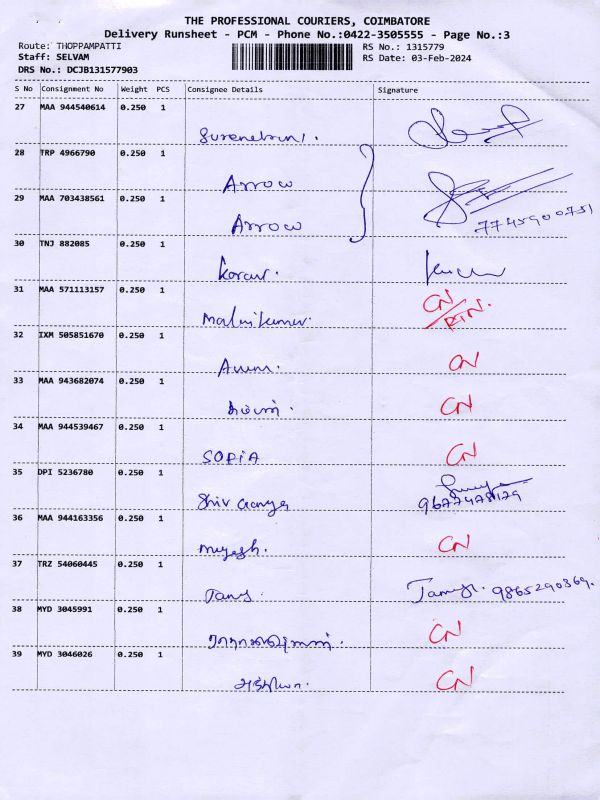 THE PROFESSIONAL COURIERS, COIMBATORE
Delivery Runsheet - PCM - Phone No.:0422-3505555 - Page No.:3
Route: THOPPAMPATTI RS No.: 1315779
Staff: SELVAM RS Date: 03-Feb-2024
DRS No.: DCJB131577903
S No Consignment No Weight PCS Consignee Details Signature
27 MAA 944540614 0.250 1
28 TRP 4966790 0.250 1
Arrow
29 MAA 703438561 0.250 1
Arrow 7745900751
30 TNJ 882085 0.250 1
31 MAA 571113157 0.250 1
CN/RTN.
32 IXM 505851670 0.250 1
CN
33 MAA 943682074 0.250 1
CN
34 MAA 944539467 0.250 1
SOPiA CN
35 DPI 5236780 0.250 1
36 MAA 944163356 0.250 1
CN
37 TRZ 54060445 0.250 1
9865290369.
38 MYD 3045991 0.250 1
CN
39 MYD 3046026 0.250 1
CN